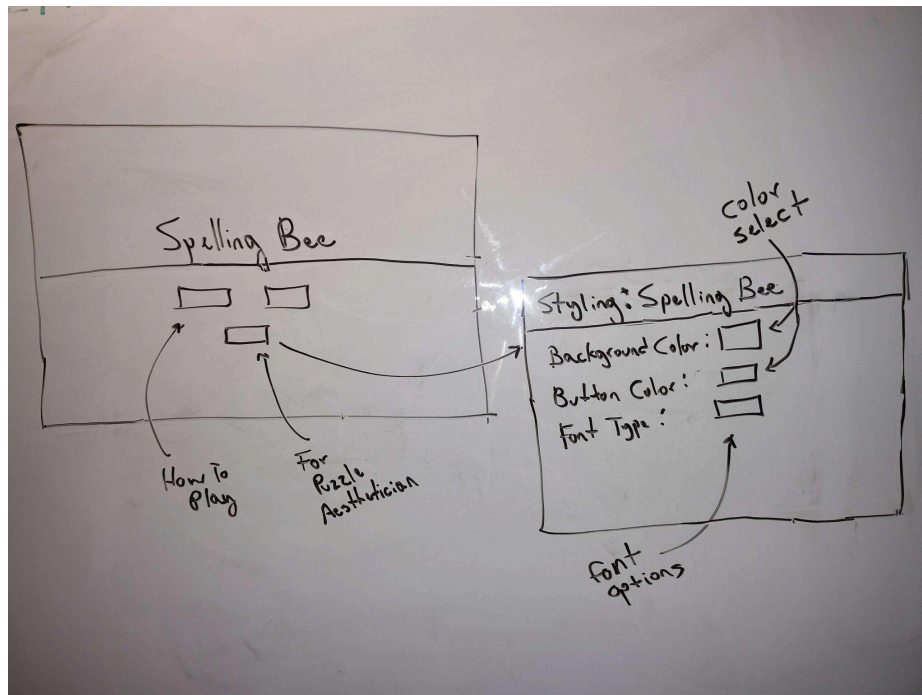 Spelling Bee
How To
Play
For
Puzzle
Aesthetician
color
select
Styling: Spelling Bee
Background Color:
Button Color:
Font Type:
font
options